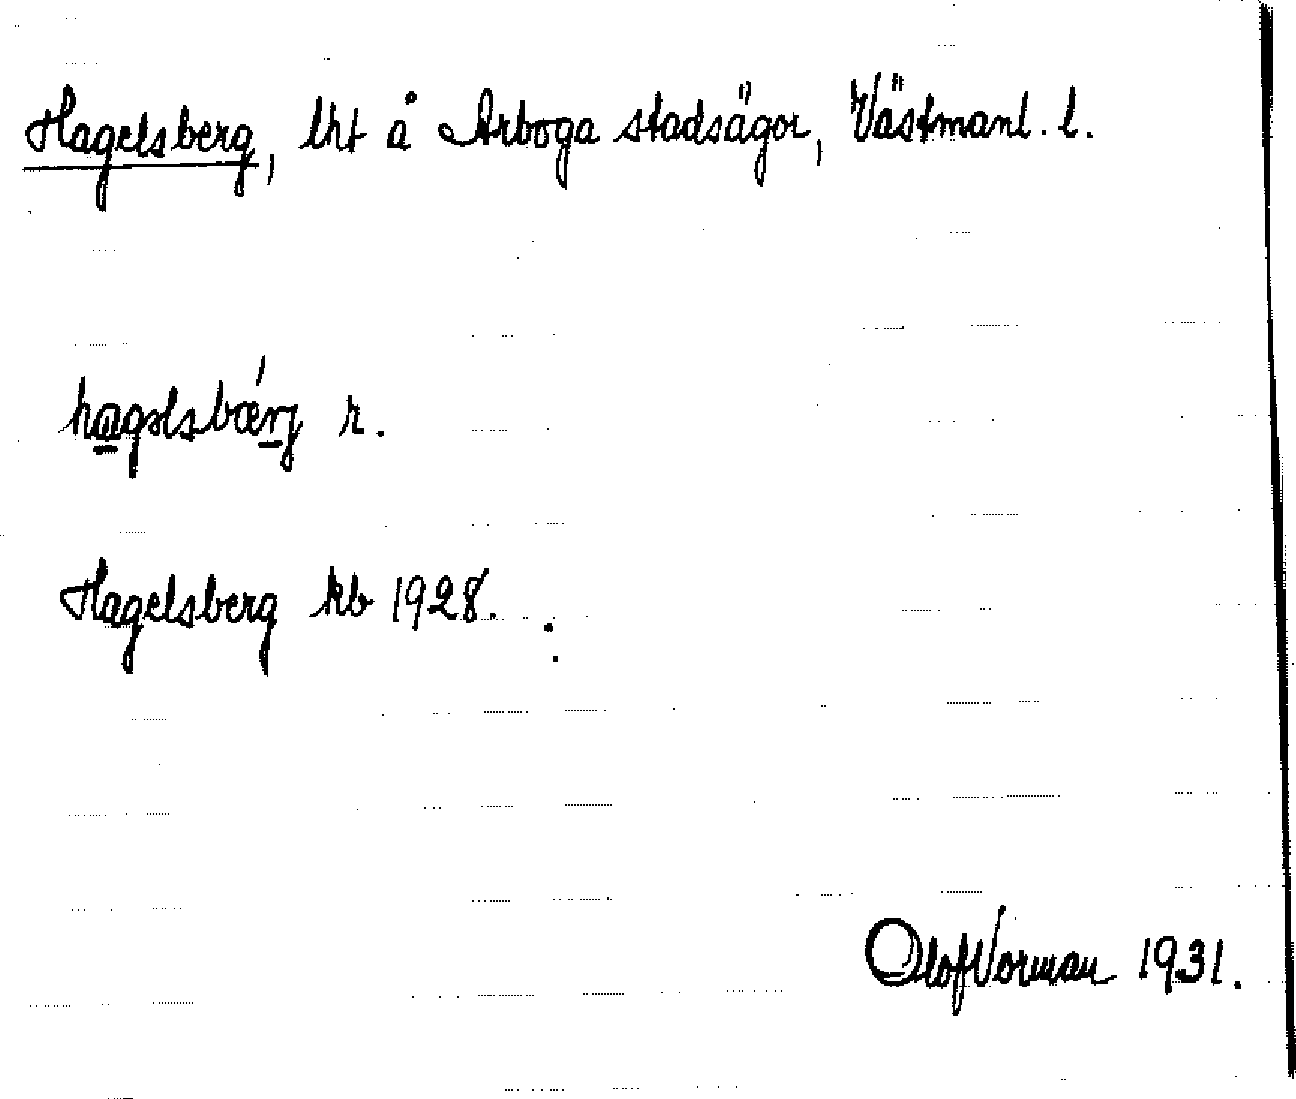 Hagelsberg, lht å Arboga stadsägor, Västmanl. l.
hagəlsbærj r.
Hagelsberg kb 1928.
Olof Vorman 1931.